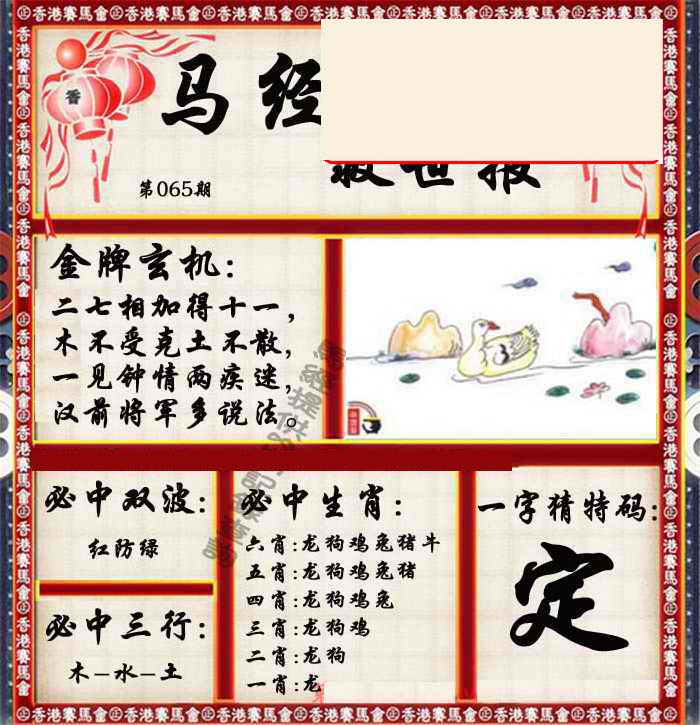 香港賽馬會
马经
救世报
香
第065期
金牌玄机:
二七相加得十一，
木不受克土不散，
一见钟情两疾迷，
汉前将军多说法。
必中双波:
红防绿
必中三行:
木-水-土
必中生肖:
六肖:龙狗鸡兔猪牛
五肖:龙狗鸡兔猪
四肖:龙狗鸡兔
三肖:龙狗鸡
二肖:龙狗
一肖:龙
一字猜特码:
定